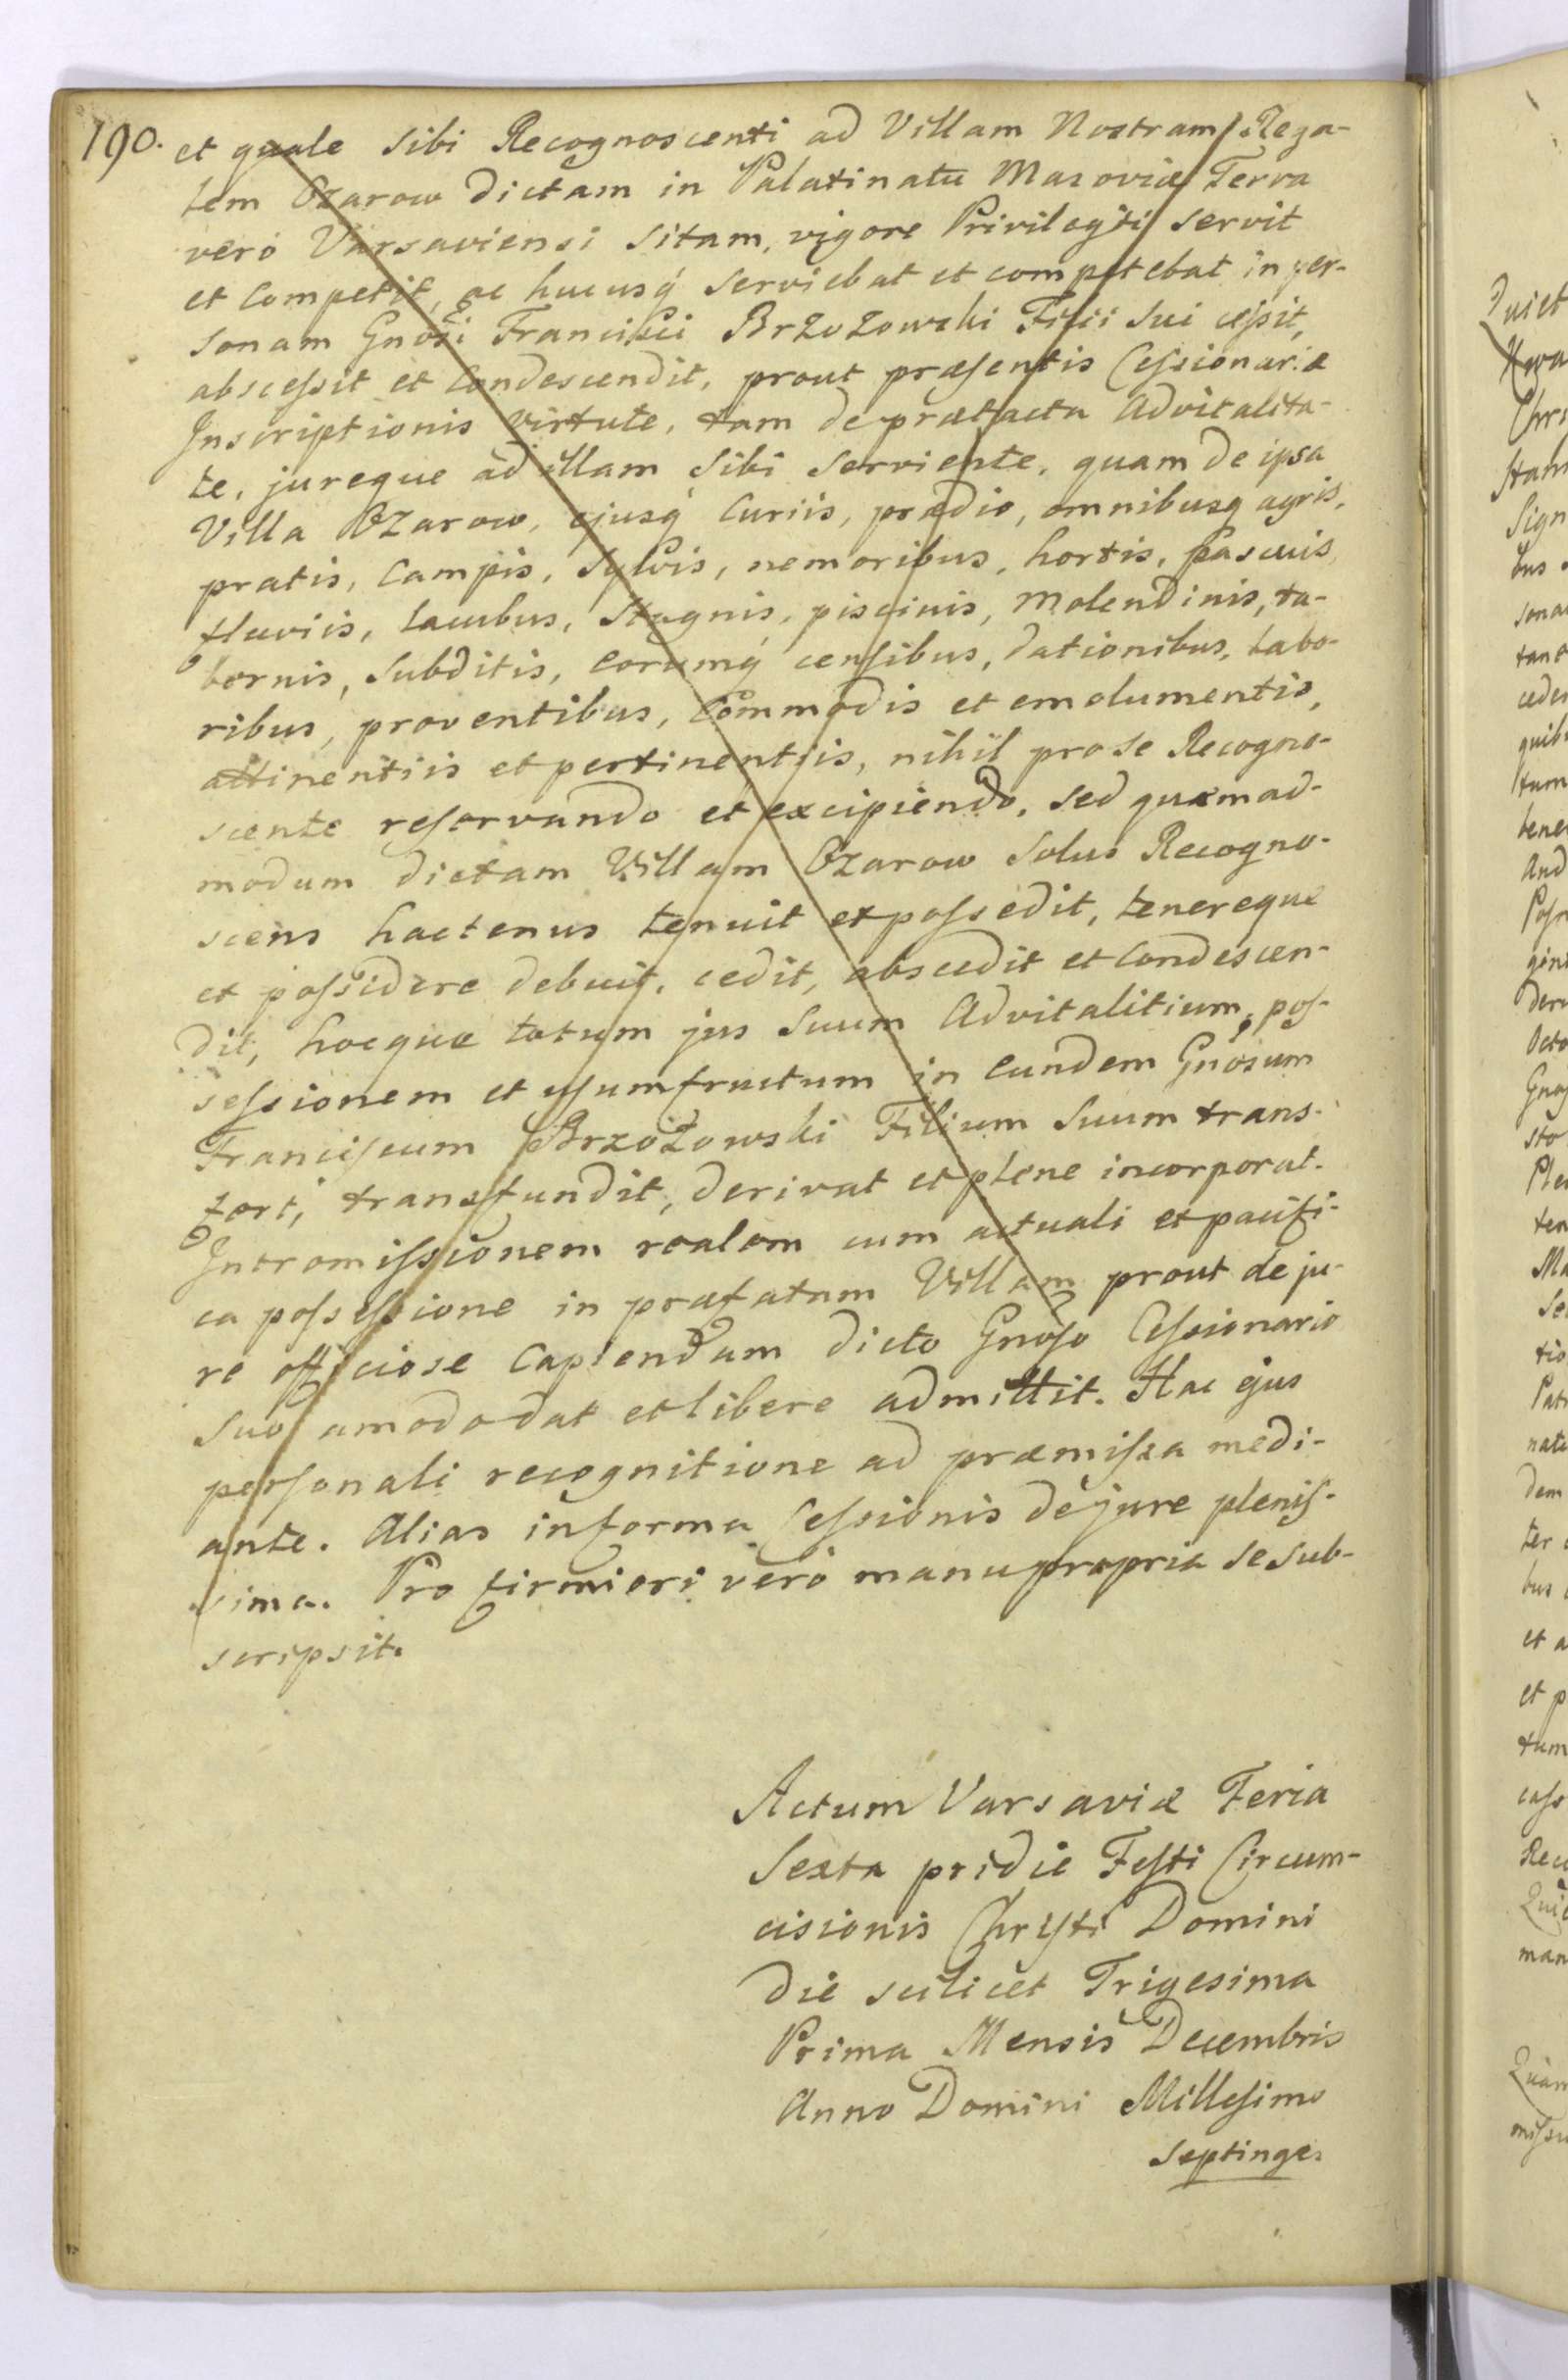 190. et quale sibi Recognoscenti ad Villam Nostram Rega-
lem Ozarow dictam in Palatinatu Masoviæ Terra
veró Varsaviensi sitam, vigore Privilegii servit
et competit, ac hucusq́ serviebat et competebat in per-
sonam Gnosi Francisci Brzozowski Filii sui cessit,
abscessit et condescendit, prout præsentis Cessionariæ
Inscriptionis virtute, tam de prætacta Advitalita-
te, jureque ad illam sibi serviente, quam de ipsa
Villa Ozarow, ejusq́ Curiis, prædio, omnibusq agris,
pratis, Campis, Sylvis, nemoribus, hortis, pascuis,
fluviis, lacubus, Stagnis, piscinis, Molendinis, ta-
bernis, Subditis, eorumq́ censibus, dationibus, labo-
ribus, proventibus, Commodis et emolumentis,
attinentiis et pertinentiis, nihil pro se Recogno-
scente reservando et excipiendo, sed quemad-
modum dictam Villam Ozarow solus Recogno-
scens hactenus tenuit et possedit, tenereque
et possidere debuit, cedit, abscedit et condescen-
dit, hocque totum jus suum Advitalitium, pos-
sessionem et usumfructum in eundem Gnosum
Franciscum Brzozowski Filium suum trans-
fert, transfundit, derivat et plene incorporat.
Intromissionem realem cum actuali et pacifi-
ca possessione in præfatam Villam prout de ju-
re officiose capiendam dicto Gnoso Cessionario
suo amodo dat et libere admittit. Hac ejus
personali recognitione ad præmissa medi-
ante. Alias in forma Cessionis de jure plenis-
sima. Pro firmiori veró manu propria se sub-
scripsit.
Actum Varsaviæ Feria
Sexta pridie Festi Circum-
cisionis Chrysti Domini
die scilicet Trigesima
Prima Mensis Decembris
Anno Domini Millesimo
septinges